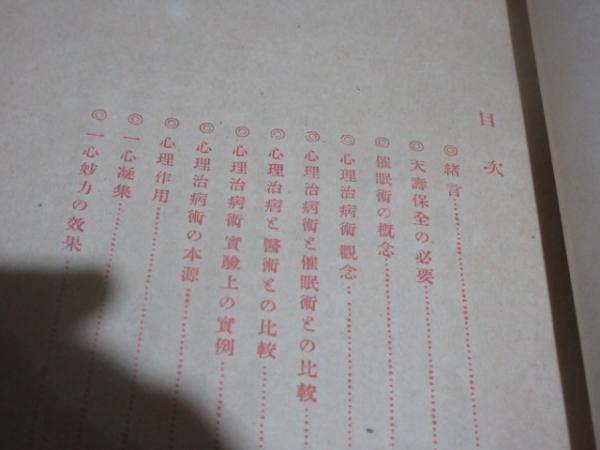 目次
◎緒言
◎天壽保全の必要
◎催眠術の概念
◎心理治病術觀念
◎心理治病術と催眠術との比較
◎心理治病と醫術との比較
◎心理治病術實驗上の實例
◎心理治病術の本源
◎心理作用
◎一心凝集
◎一心妙力の效果